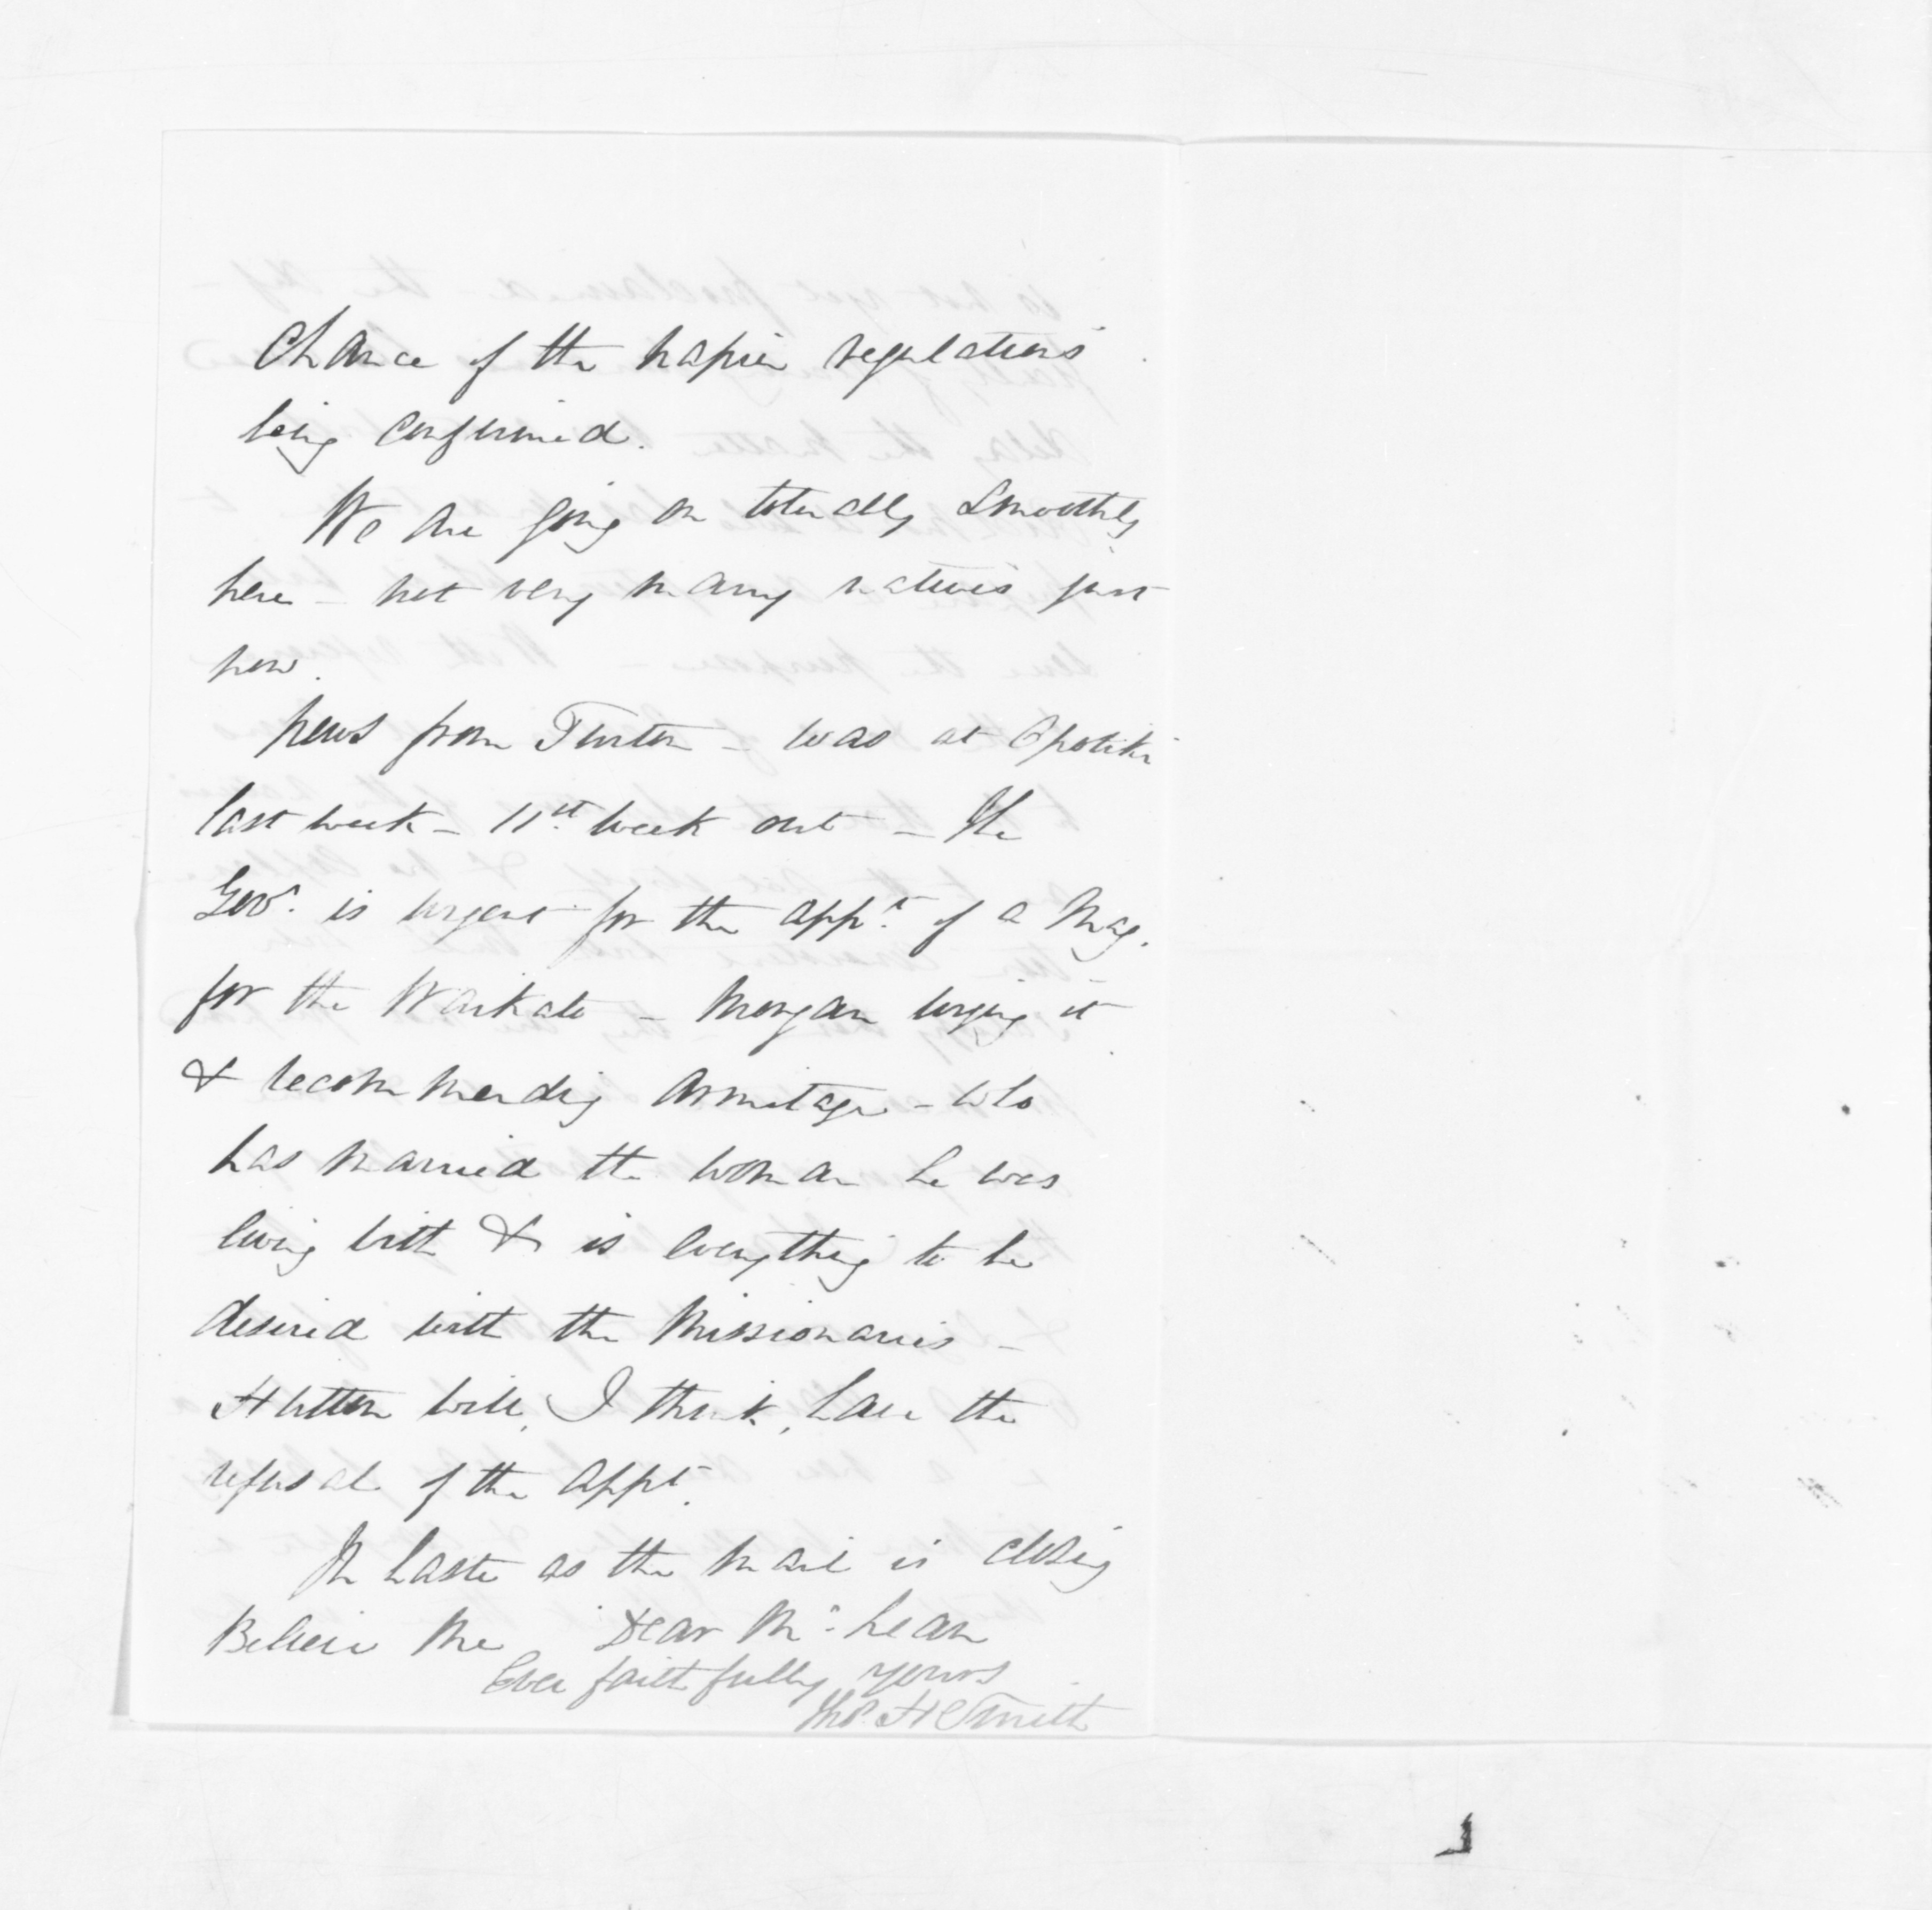 Chance of the Napier regulations
being confirmed.
We are going on tolerably smoothly
here - not very many natives just
now.
News from Turton - was at Opotiki
last week - 11th week out - The
Govr. is urgent for the appt. of a Mag.
for the Waikato - Morgan urging it
& recommending Armitage - who
has married the woman he was
living with & is everything to be
desired with the Missionaries -
Hutton will, I think, have the
refusal of the appt.
In haste as the mail is closing
Believe me, Dear McLean
Ever faithfully yours
Thos. H Smith